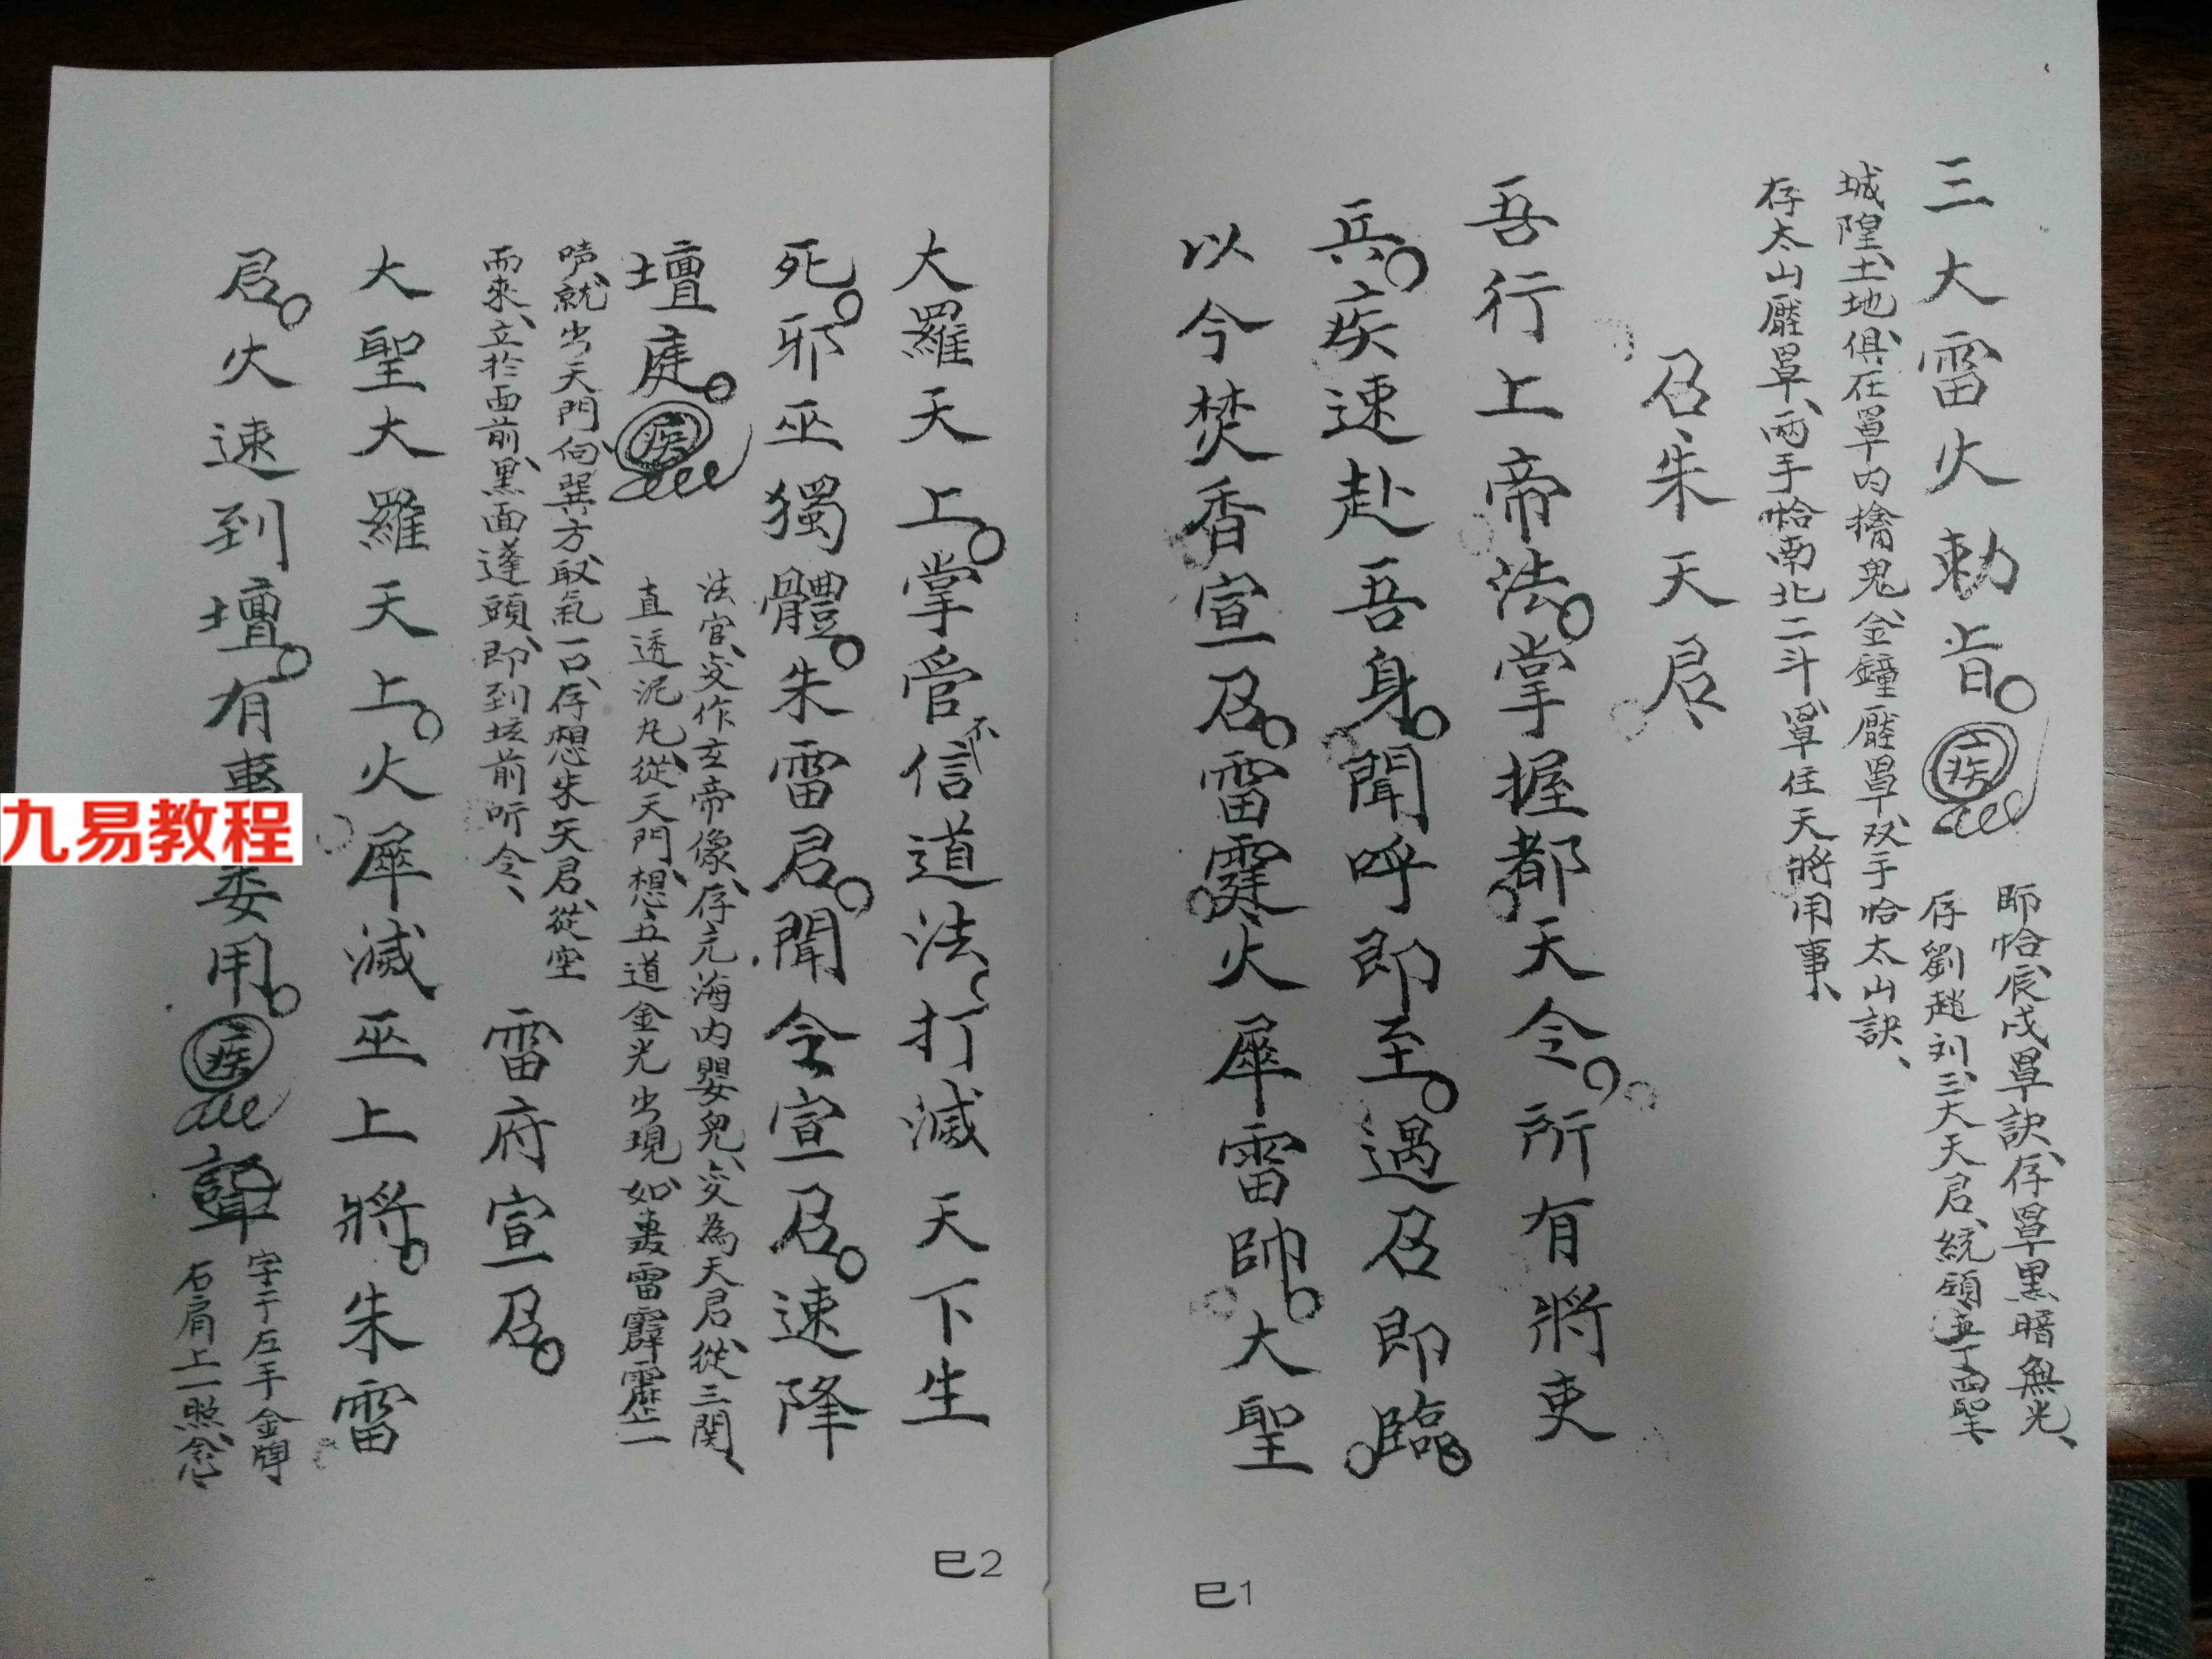 三大雷火勅旨。疾
師恰辰戌罩訣、存罩黑暗無光、
存劉趙刘三大天君、統領
城隍、土地俱在罩內擒鬼、金鐘壓罩、双手恰太山訣、
存太山壓罩、兩手恰南北二斗、罩住天將用事、
召朱天君、
吾行上帝法。掌握都天令。所有將吏
兵。疾速赴吾身。聞呼即至。遇召即臨。
以今焚香宣召。雷霆火犀雷帥。大聖
巳1
大羅天上。掌管不信道法、打滅天下生
死。邪巫獨體。朱雷君。聞令宣召。速降
壇庭。疾
法官、变作玄帝像、存元海内嬰兒、变為天君、從三関、
直透泥丸、從天門、想五道金光出現、如轟雷霹靂一
声、就出天門、向巽方取氣一口、存想朱天君、從空
而來、立於面前、黑面蓬頭、即到坛前听令、
雷府宣召。
大聖大羅天上。火犀滅巫上將。朱雷
君。火速到壇。有事委用。疾
字于左手金牌
右肩上一照、念、
巳2
九易教程